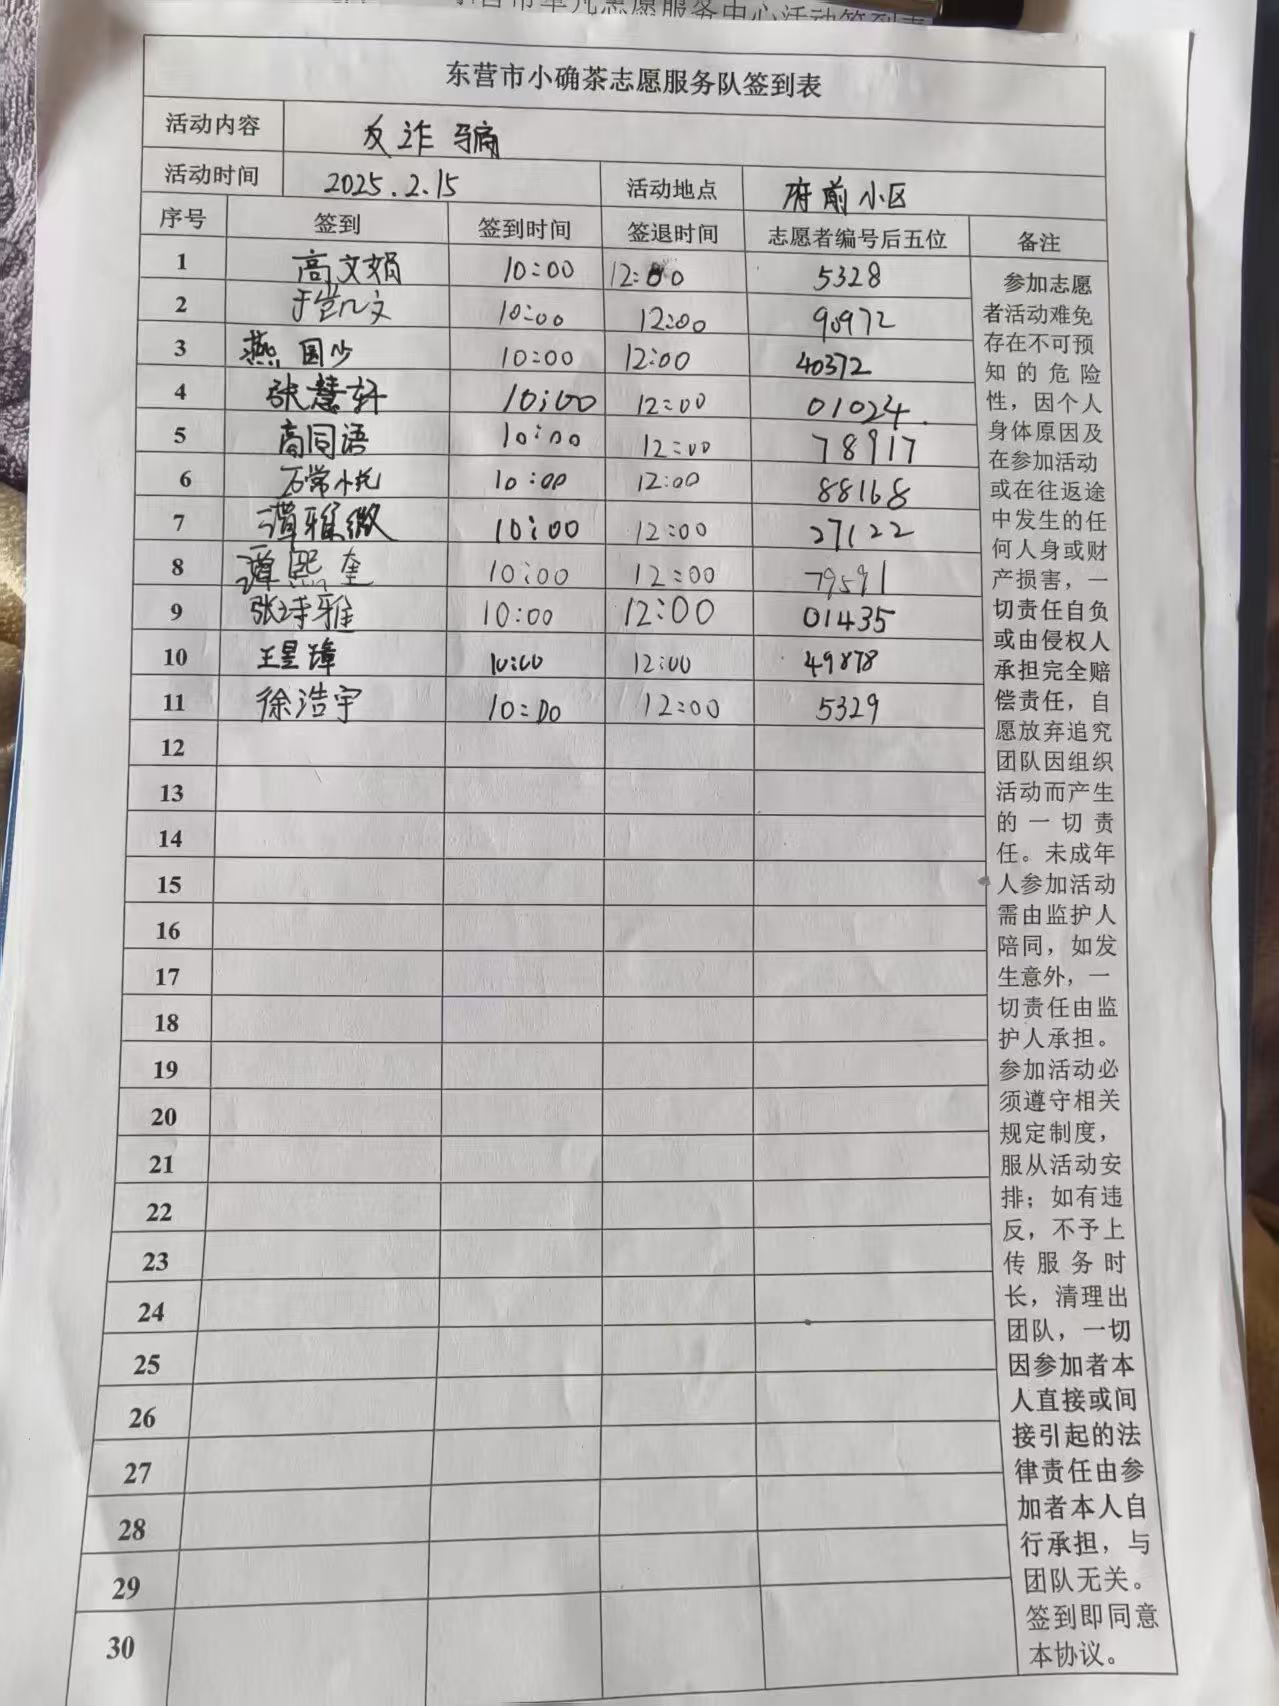 东营市小确茶志愿服务队签到表
活动内容 反诈骗
活动时间 2025.2.15 活动地点 府前小区
序号 签到 签到时间 签退时间 志愿者编号后五位 备注
1 高文娟 10:00 12:00 5328
2 10:00 12:00 90972
3 燕国少 10:00 12:00 40372
4 张慧轩 10:00 12:00 01024.
5 高同语 10:00 12:00 78917
6 10:00 12:00 88168
7 谭雅微 10:00 12:00 27122
8 谭熙奎 10:00 12:00 79591
9 张诗雅 10:00 12:00 01435
10 王昱璋 10:00 12:00 49878
11 徐浩宇 10:00 12:00 5329
12
13
14
15
16
17
18
19
20
21
22
23
24
25
26
27
28
29
30
参加志愿
者活动难免
存在不可预
知的危险
性，因个人
身体原因及
在参加活动
或在往返途
中发生的任
何人身或财
产损害，一
切责任自负
或由侵权人
承担完全赔
偿责任，自
愿放弃追究
团队因组织
活动而产生
的一切责
任。未成年
人参加活动
需由监护人
陪同，如发
生意外，一
切责任由监
护人承担。
参加活动必
须遵守相关
规定制度，
服从活动安
排；如有违
反，不予上
传服务时
长，清理出
团队，一切
因参加者本
人直接或间
接引起的法
律责任由参
加者本人自
行承担，与
团队无关。
签到即同意
本协议。